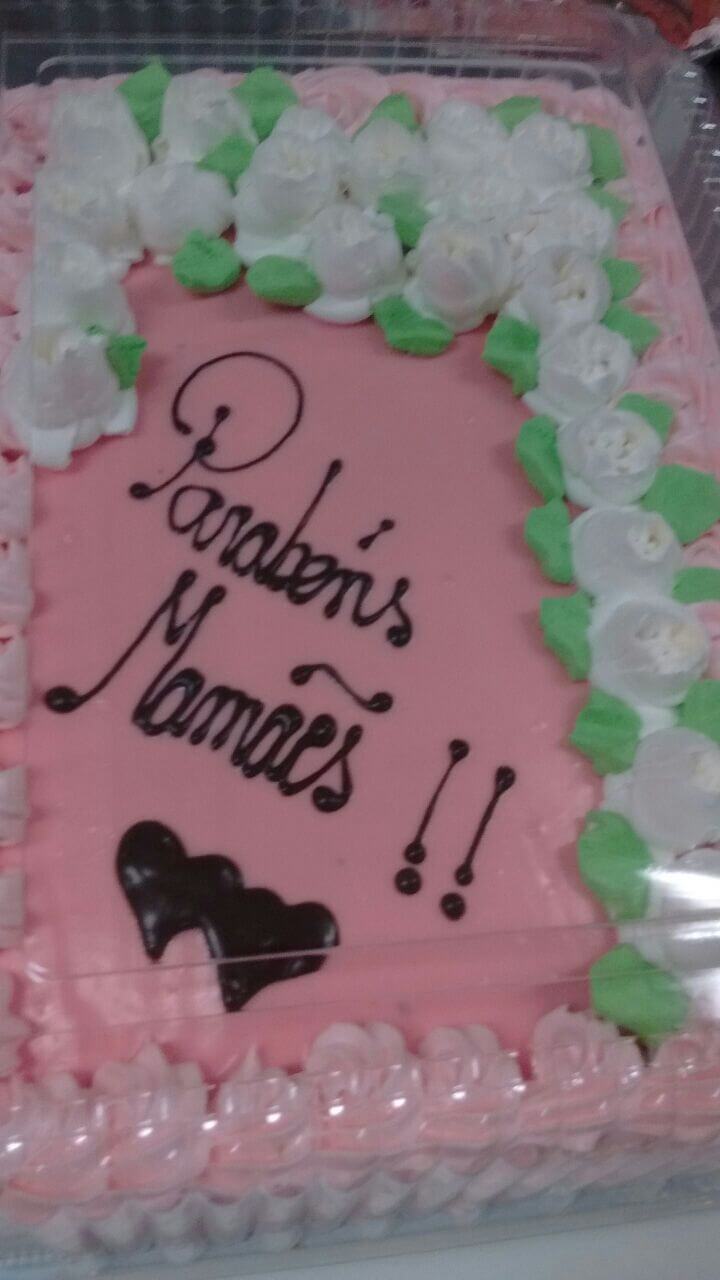 Parabéns
Mamães !!